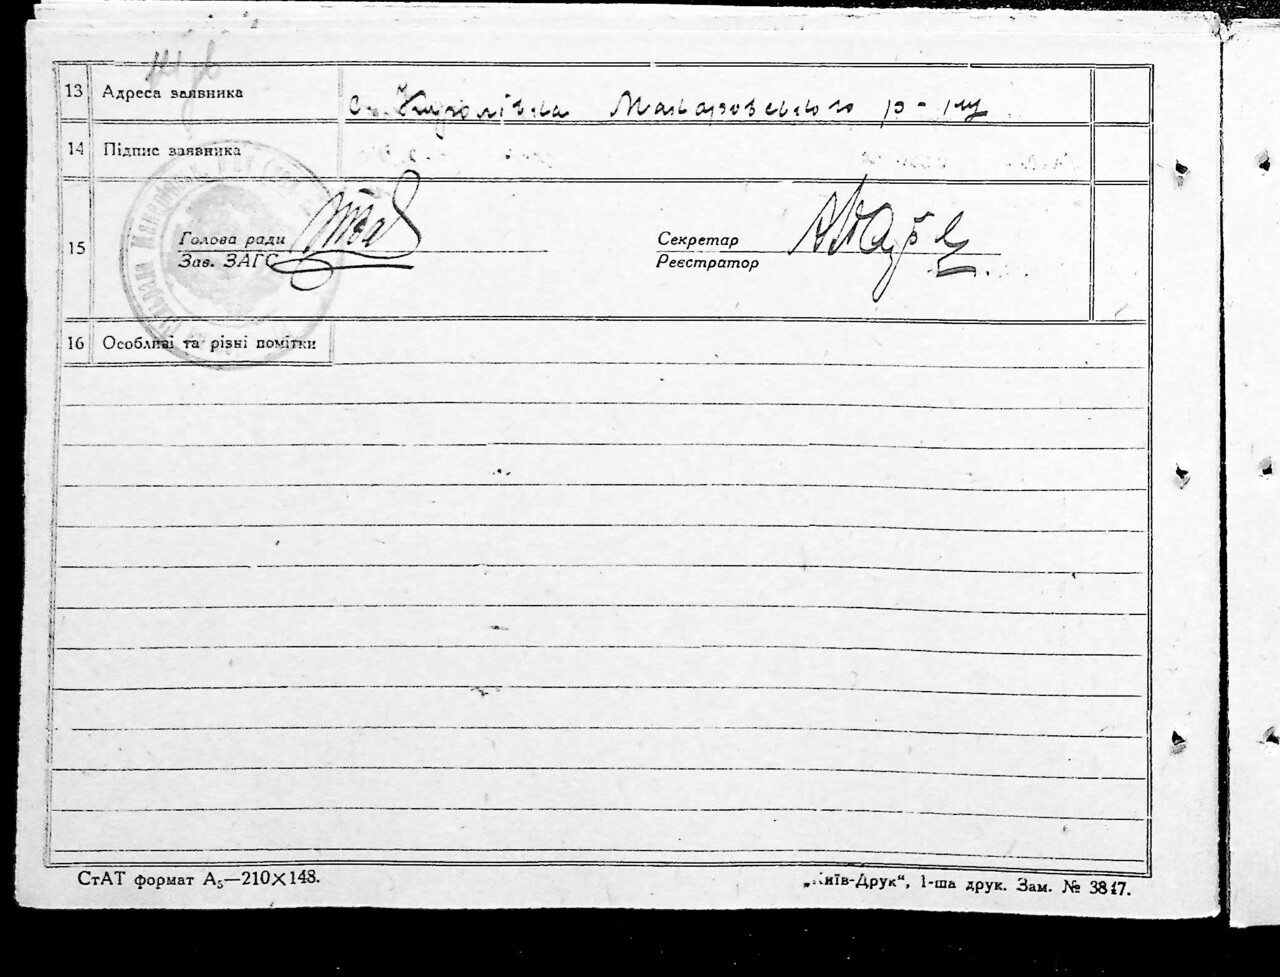 13 Адреса заявника с. Королівка Макаровського р-ну
14 Підпис заявника
15 Голова ради Секретар
Зав. ЗАГС Реєстратор
16 Особливі та різні помітки
СтАТ формат А₅—210×148. „Київ-Друк“, 1-ша друк. Зам. № 3847.